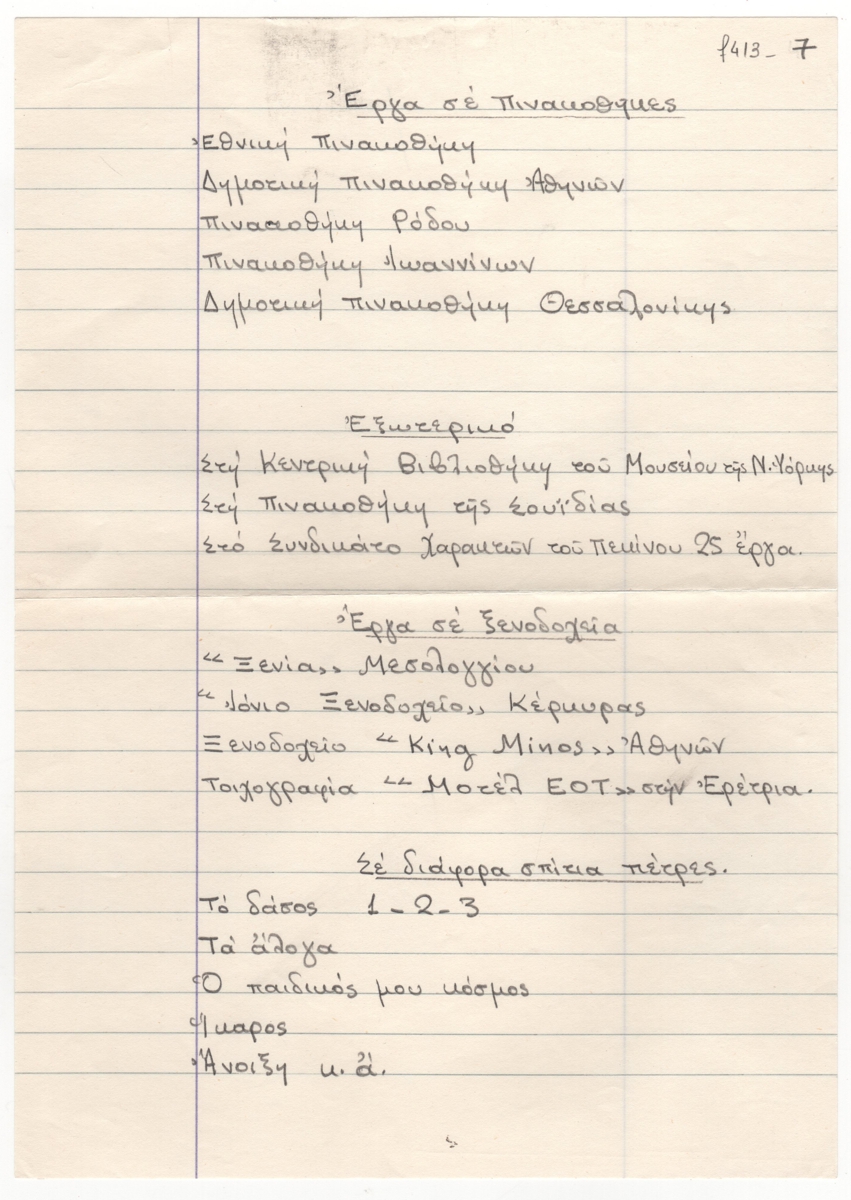 f413- 7
Ἔργα σέ πινακοθηκες
Ἐθνική πινακοθήκη
Δημοτική πινακοθήκη Ἀθηνῶν
Πιναποθήκη Ρόδου
Πινακοθήκη Ἰωαννίνων
Δημοτική πινακοθήκη Θεσσαλονίκης
Ἐξωτερικό
Στή Κεντρική Βιβλιοθήκη τοῦ Μουσείου τῆς Ν. Ὑόρκης
Στή Πινακοθήκη τῆς Σουϊδίας
Στό Συνδικάτο Χαρακτῶν τοῦ Πεκίνου 25 ἔργα.
Ἔργα σέ ξενοδοχεῖα
“Ξενία„ Μεσολογγίου
“Ἰόνιο Ξενοδοχεῖο„ Κέρκυρας
Ξενοδοχεῖο “King Minos„ Ἀθηνῶν
Τοιχογραφία “Μοτέλ ΕΟΤ„ στήν Ἐρέτρια.
Σέ διάφορα σπίτια πέτρες.
Τό δάσος 1-2-3
Τά ἄλογα
Ὁ παιδικός μου κόσμος
Ἵκαρος
Ἄνοιξη κ. ἄ.